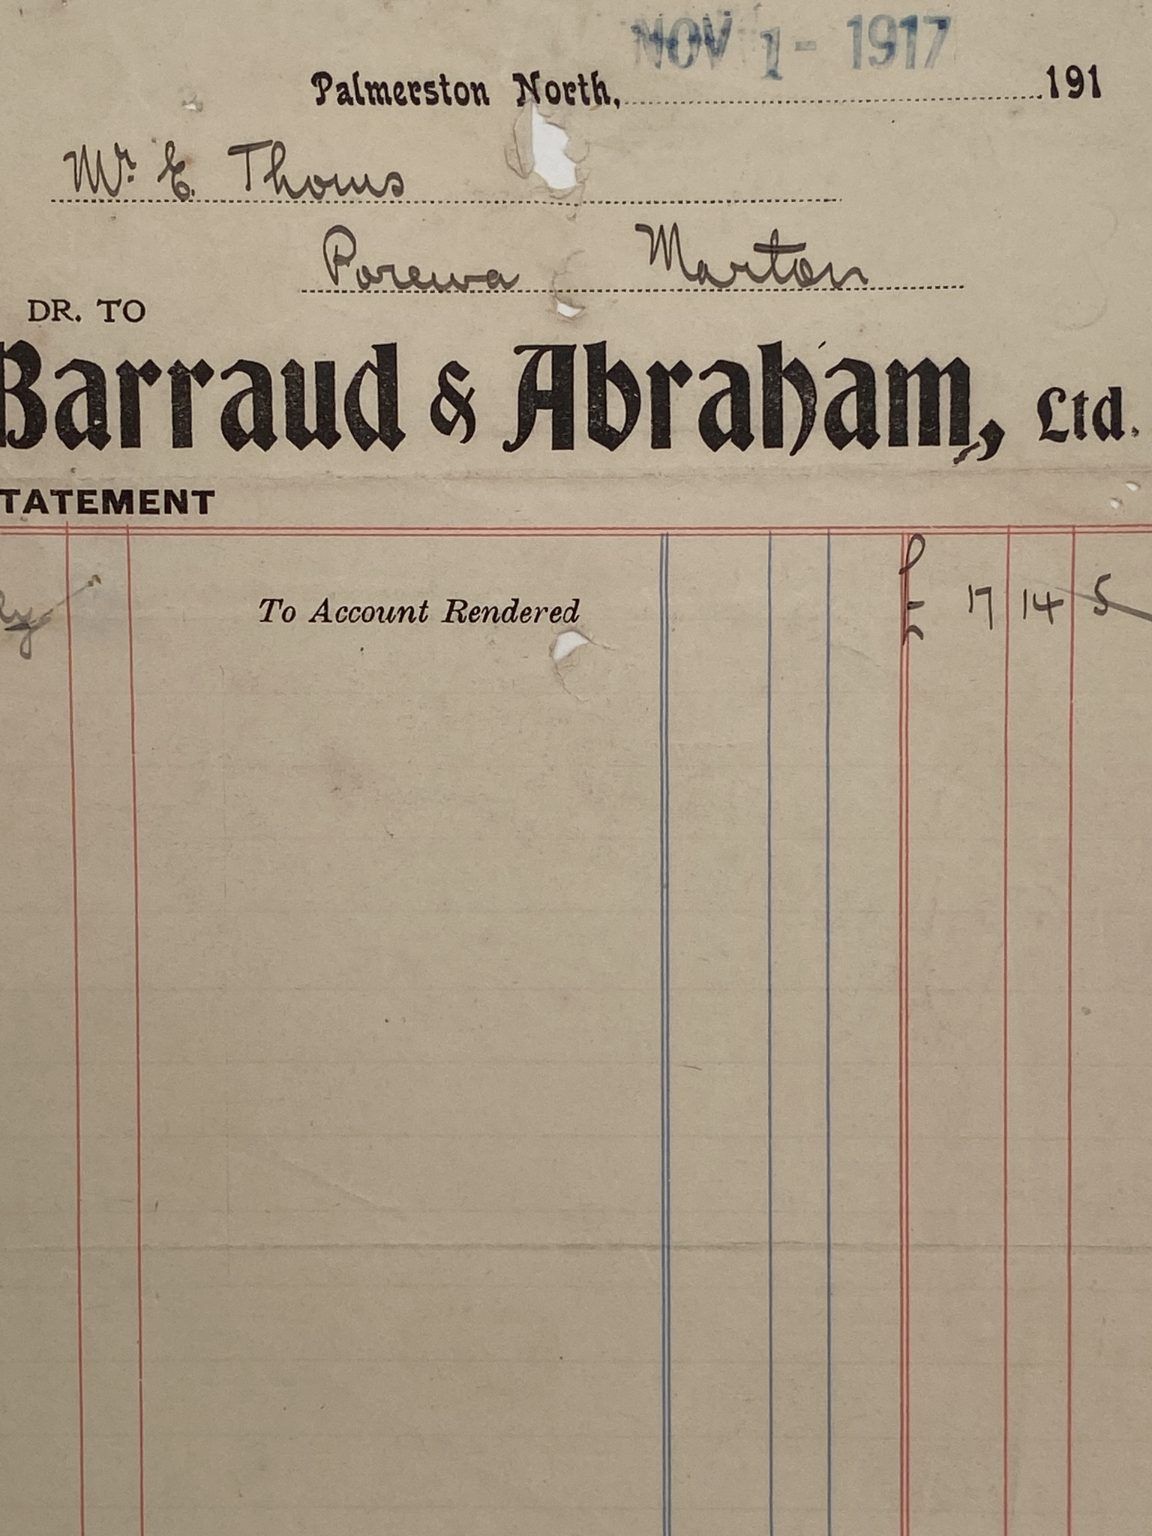 NOV 1 - 1917
Palmerston North, 191
Mr. E. Thoms
Porewa Marton
DR. TO
Barraud & Abraham, Ltd.
TATEMENT
To Account Rendered £ 17 14 5